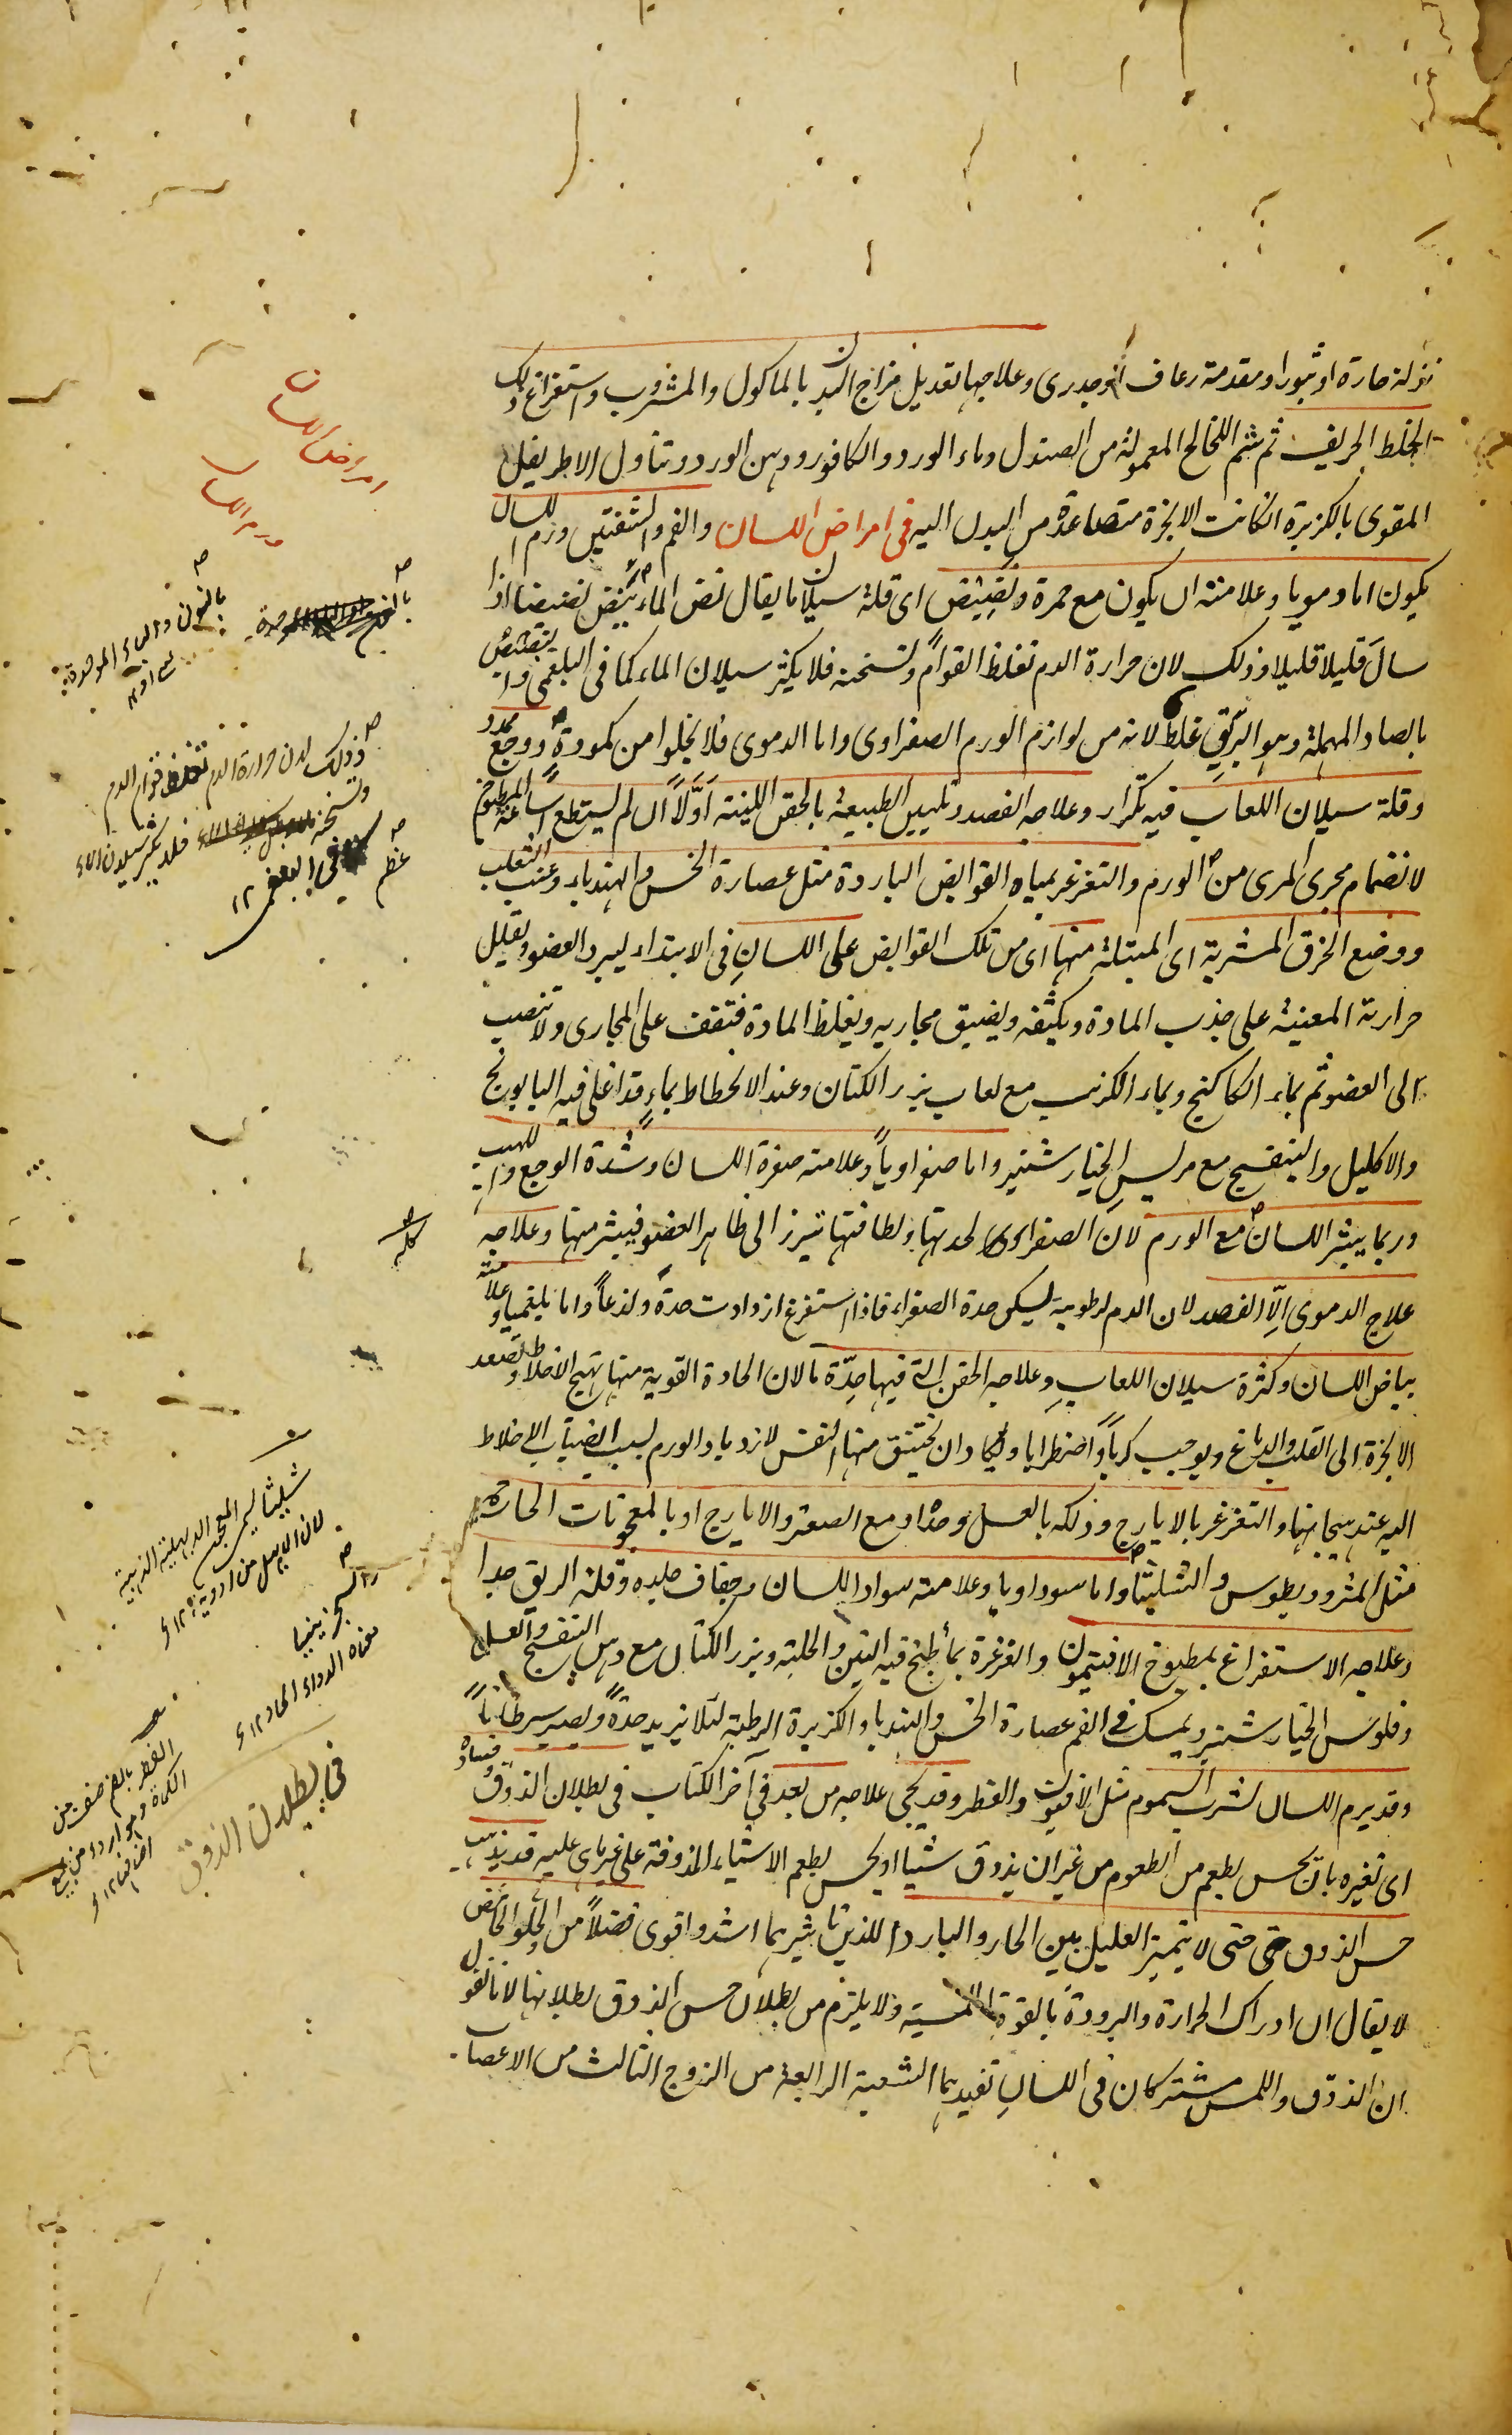 نزلة حارة او ثبورا ومقدمة رعاف او جدرى وعلاجها تعديل مزاج البدن بالماكول والمشروب واستفراغ ذلك
الخلط الحريف ثم شم اللخالخ المعمولة من الصندل وماء الورد والكافور ودهن الورد وتناول الاطريفل
المقوى بالكزبرة انكانت الابخرة متصاعدة من البدن اليه فى امراض اللسان والفم والشفتين ورم اللسان
يكون اما دمويا وعلامته ان يكون مع حمرة ونضيض اى قلة سيلان ما يقال نض الماء ينض نضيضا اذا
سال قليلا قليلا وذلك لان حرارة الدم تغلظ القوام وتسخنه فلا يكثر سيلان الماء كما فى البلغمى
بالصاد المهملة وهو البريق غلط لانه من لوازم الورم الصفراوى واما الدموى فلا يخلوا من كمودة ووجع ممدد
وقلة سيلان اللعاب فيه تكرار وعلاجه الفصد وتليين الطبيعة بالحقن اللينة اولا ان لم يستطع اساغة المطبوخ
لانضمام مجرى المرى من الورم والتغرغر بمياه القوابض الباردة مثل عصارة الخس والهندباء وعنب الثعلب
ووضع الخرق المشربة اى المبتلة منها اى من تلك القوابض على اللسان فى الابتداء ليبرد العضو ويقلل
حرارته المعينة على جذب المادة ويكثفه ويضيق مجاريه ويغلظ المادة فتقف على المجارى ولا تنصب
الى العضو ثم بماء الكاكنج وبماء الكرنب مع لعاب بزر الكتان وعند الانحطاط بماء قد اغلى فيه البابونج
والاكليل والبنفسج مع مريس الخيارشنبر واما صفراويا وعلامته صفرة اللسان وشدة الوجع واللهيب
وربما يبثر اللسان مع الورم لان الصفراوى لحدتها ولطافتها تبرز الى ظاهر العضو فيبثر منها وعلاجه
علاج الدموى الا الفصد لان الدم لرطوبته يسكن حدة الصفراء فاذا استفرغ ازدادت حدة ولذعا واما بلغميا وعلامته
بياض اللسان وكثرة سيلان اللعاب وعلاجه الحقن التى فيها حدة ما لان الحادة القوية منها تهيج الاخلاط وتصعد
الابخرة الى القلب والدماغ ويوجب كربا واضطرابا ويكاد ان يختنق منها النفس لازدياد الورم بسبب انصباب الاخلاط
اليه عند هيجانها والتغرغر بالايارج وذلكه بالعسل وحده او مع الصعتر والايارج او بالمعجونات الحارة
مثل المثروديطوس والشليثا واما سوداويا وعلامته سواد اللسان وجفاف جلده وقلة الريق جدا
وعلاجه الاستفراغ بمطبوخ الافتيمون والغرغرة بما طبخ فيه التين والحلبة وبزر الكتان مع دهن البنفسج والعسل
وفلوس الخيارشنبر ويمسك فى الفم عصارة الخس والهندبا والكزبرة الرطبة لئلا يزيد حدة ويصير سرطانا
وقد يرم اللسان لشرب السموم مثل الافيون والفطر وقد يجى علاجه من بعد فى آخر الكتاب فى بطلان الذوق وفساده
اى تغيره بان يحس بطعم من الطعوم من غير ان يذوق شيئا او يحس بطعم الاشياء المذوقة على غير ما هى عليه قد يذهب
حس الذوق حتى لا يتميز العليل بين الحار والبارد اللذين تاثيرهما اشد واقوى فضلا من الحلو والحامض
لا يقال ان ادراك الحرارة والبرودة بالقوة اللمسية ولا يلزم من بطلان حس الذوق بطلانها لانا نقول
ان الذوق واللمس مشتركان فى اللسان تفيدهما الشعبة الرابعة من الزوج الثالث من الاعصاب
امراض اللسان
ورم اللسان
بالنون والباء الموحدة
وذلك لان حرارة الدم تغلظ قوام الدم
وتسخنه فلا يكثر سيلان الماء
كما فى البلغمى ١٢
عظم
شليثا
معناه الدواء الحاد ١٢
فى بطلان الذوق
الفطر بالضم صنف من
الكماة